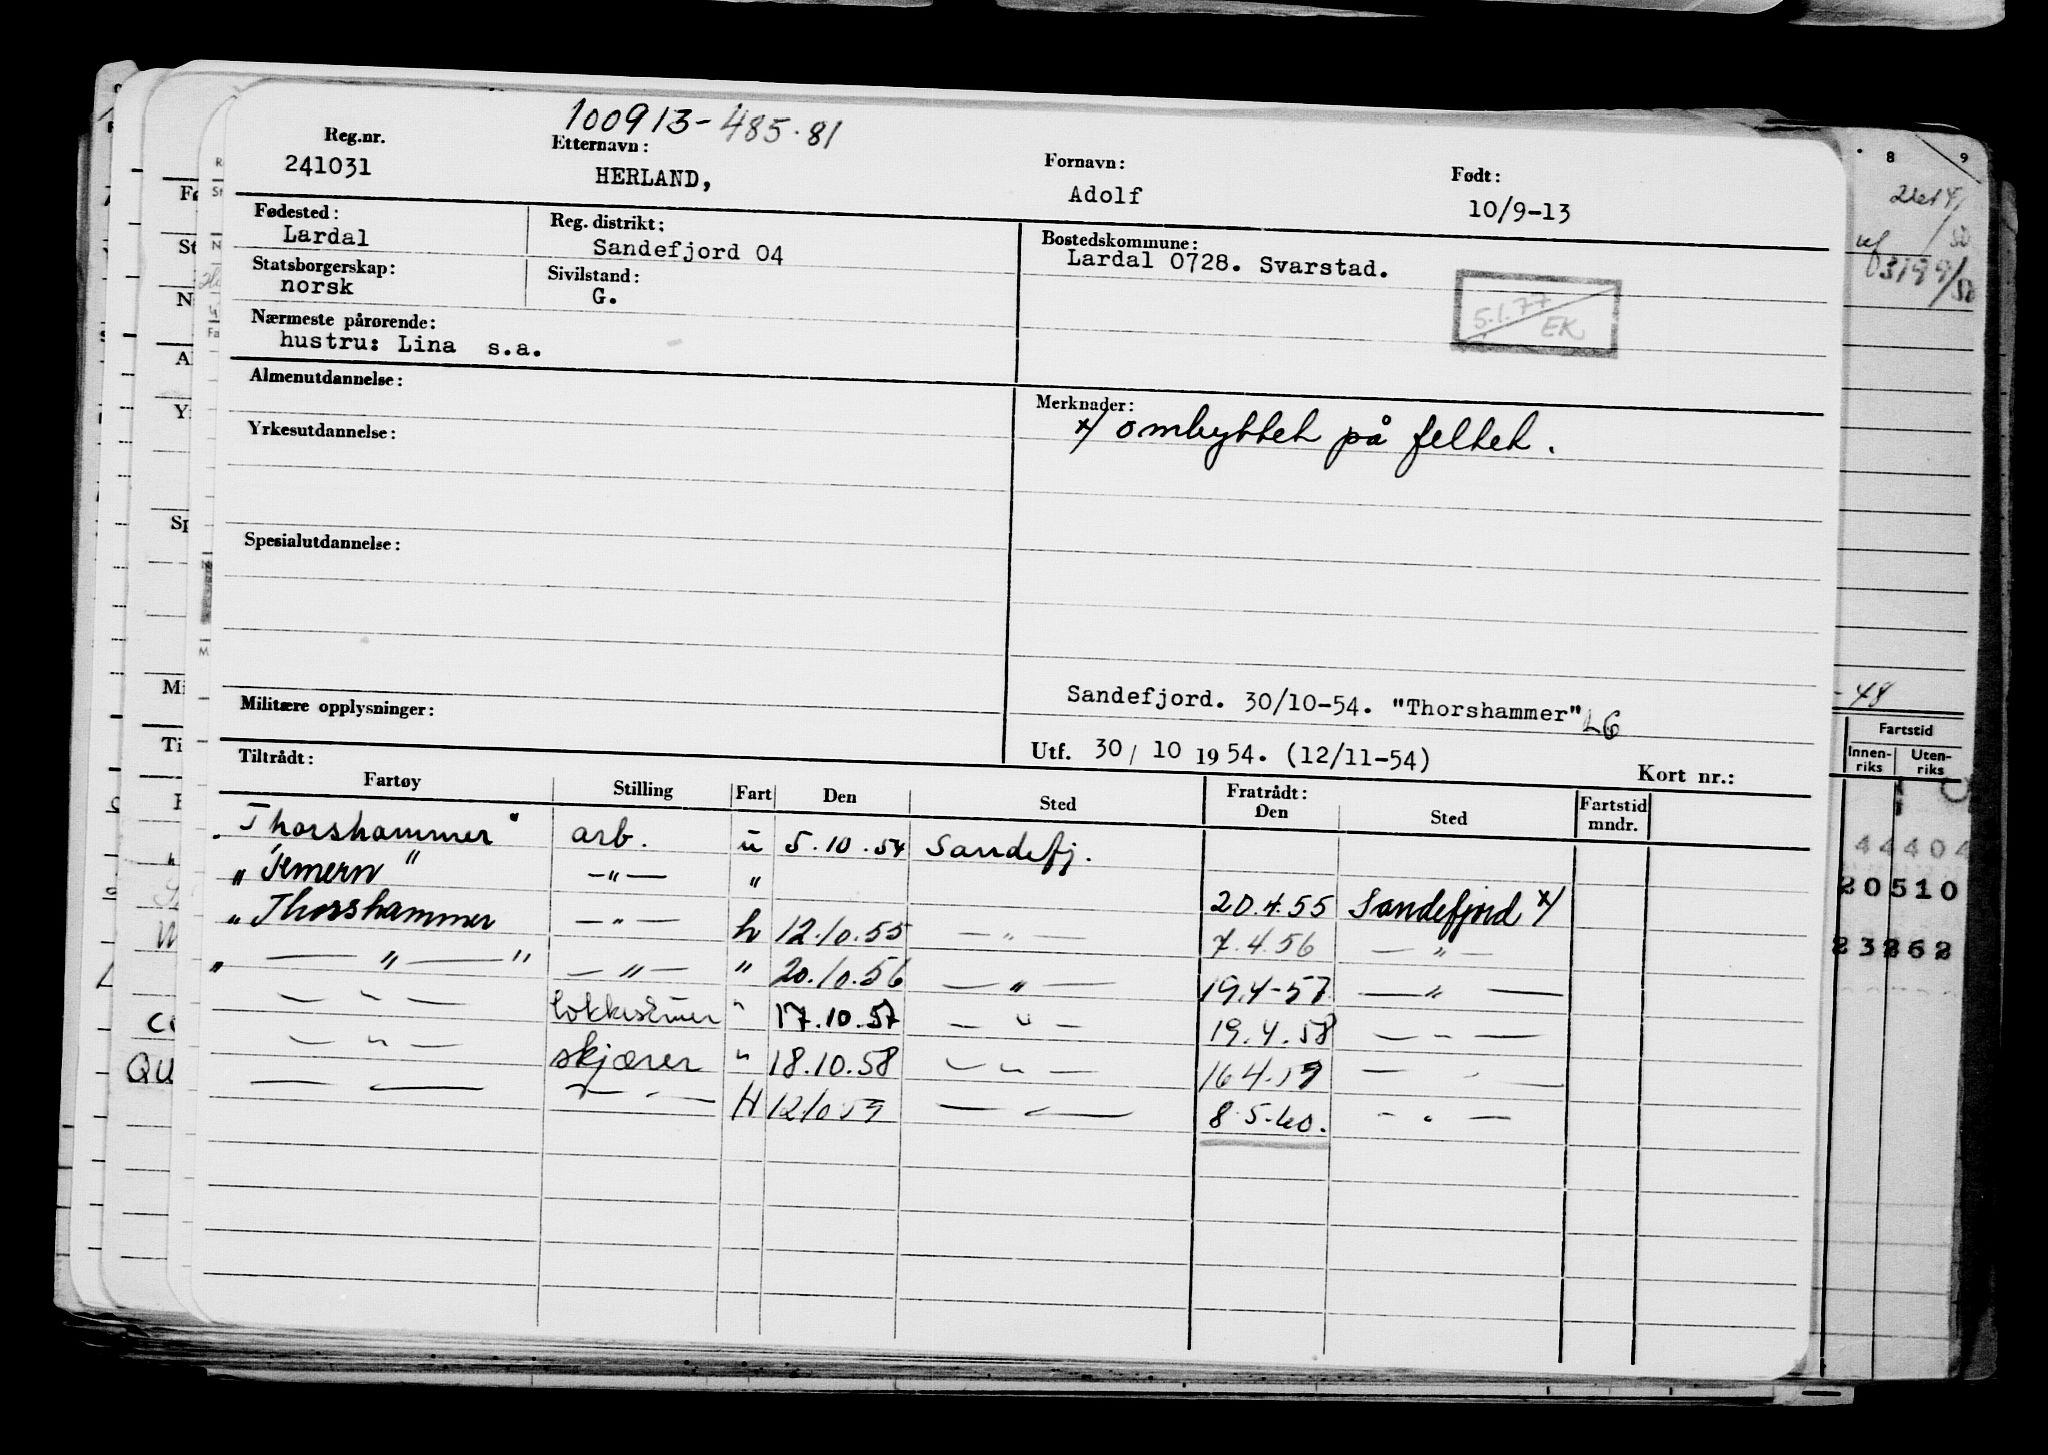 100913-485.81
Reg.nr. Etternavn: Fornavn: Født:
241031 HERLAND, Adolf 10/9-13
Fødested: Reg. distrikt: Bostedskommune:
Lardal Sandefjord 04 Lardal 0728. Svarstad.
Statsborgerskap: Sivilstand:
norsk G.
5.1.77
EK
Nærmeste pårørende:
hustru: Lina s.a.
Almenutdannelse: Merknader:
x/ ombyttet på feltet.
Yrkesutdannelse:
Spesialutdannelse:
Sandefjord. 30/10-54. "Thorshammer" LG
Militære opplysninger:
Utf. 30/ 10 1954. (12/11-54) Kort nr.:
Tiltrådt: Fratrådt:
Fartøy Stilling Fart Den Sted Den Sted Fartstid mndr.
"Thorshammer" arb. u 5.10.54 Sandefj.
"Kmern" —"— " 20.4.55 Sandefjord x/
"Thorshammer —"— h 12.10.55 —"— 7.4.56 —"—
" —"— " —"— " 20.10.56 —"— 19.4-57 —"—
—"— " 17.10.57 —"— 19.4.58 —"—
—"— skjærer " 18.10.58 —"— 16 4.59 —"—
—"— —"— H 12 10 59 —"— 8.5.60. —"—
8 9
03199/50
-48
Fartstid
Innen-riks Uten-riks
44404
20510
23262
QU